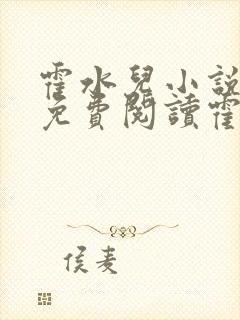 霍水兒小說
免費閱讀霍
侯麦